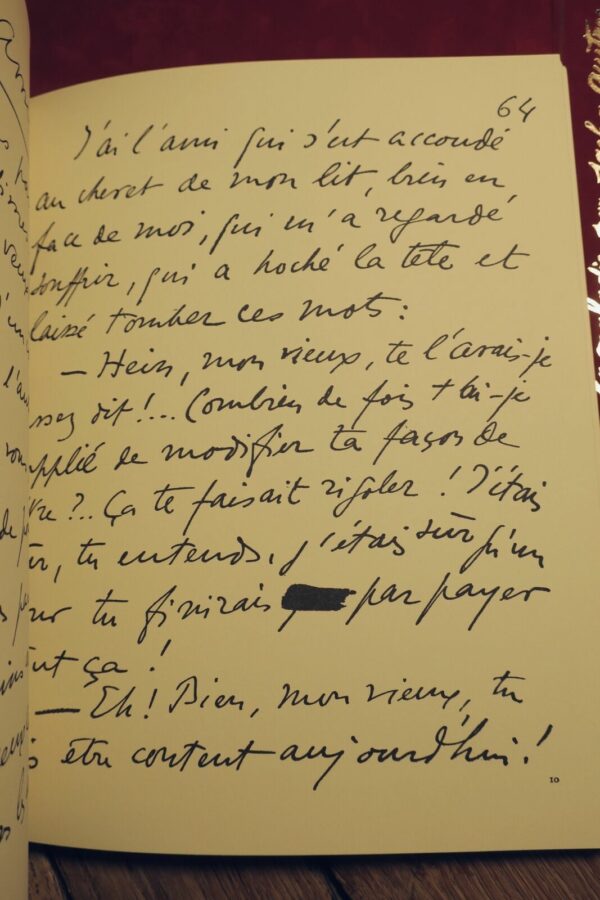 64
J'ai l'ami qui s'est accoudé
au chevet de mon lit, bien en
face de moi, qui m'a regardé
souffrir, qui a hoché la tête et
laissé tomber ces mots :
— Hein, mon vieux, te l'avais-je
ssez dit !... Combien de fois t'ai-je
pplié de modifier ta façon de
vre ?.. Ça te faisait rigoler ! J'étais
ûr, tu entends, j'étais sûr qu'un
our tu finirais par payer
out ça !
— Eh ! Bien, mon vieux, tu
s être content aujourd'hui !
10